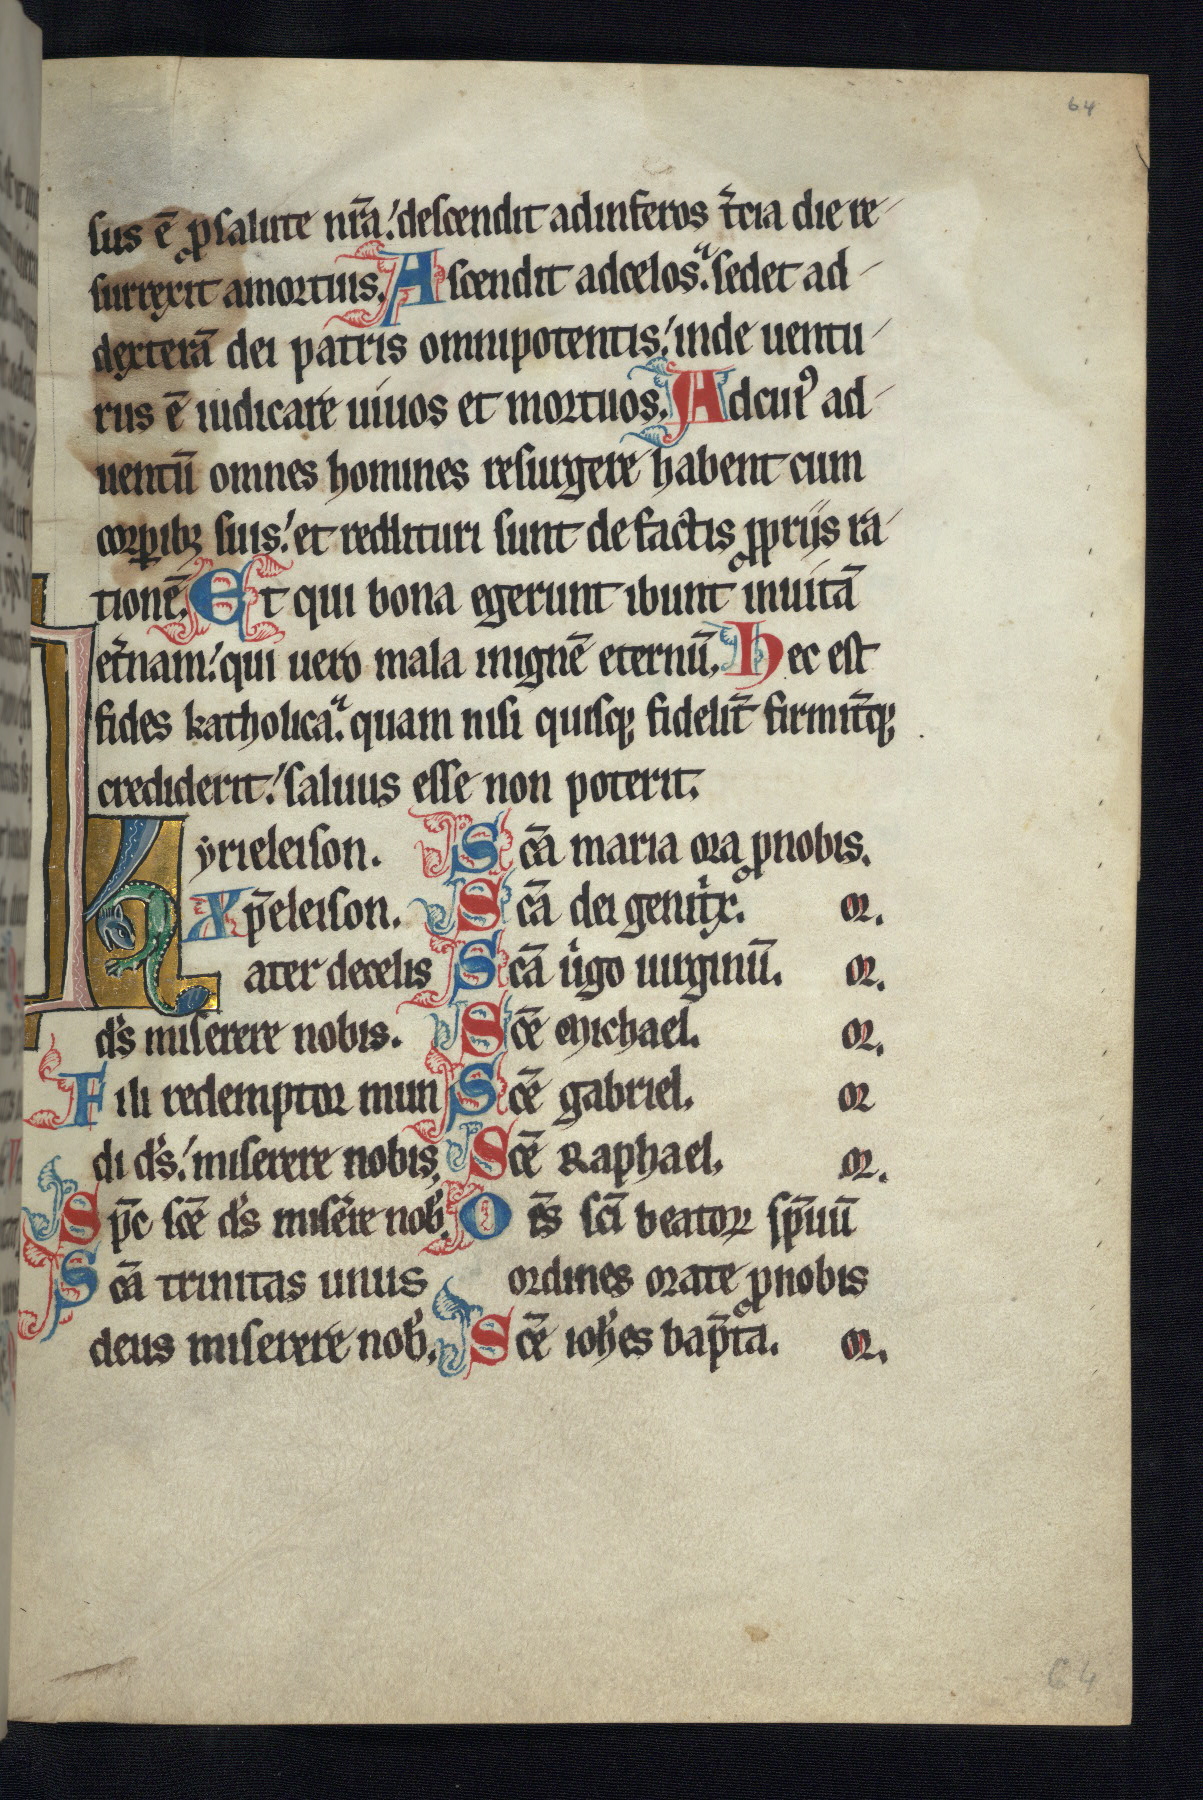 64
sus ē ꝓsalute nr̄a. descendit adinferos t̄cia die re-
surrexit amortuis. Ascendit adcelos. sedet ad-
dexterā dei patris omnipotentis. inde uentu-
rus ē iudicare uiuos et mortuos. Adcuiꝰ ad-
uentū omnes homines resurgere habent cum
corꝑibꝫ suis. et reddituri sunt de factis ꝓpriis ra-
tionē. Et qui bona egerunt ibunt inuitā
et̄nam. qui uero mala inignē eternū. Hec est
fides katholica. quam nisi quisqꝫ fidelit̄ firmit̄qꝫ
crediderit. saluus esse non poterit.
Kyrieleison.
Xp̄eleison.
Pater decelis
ds̄ miserere nobis.
Fili redemptor mun
di ds̄. miserere nobis,
Sp̄c sc̄e ds̄ misere̅ nob̄.
Sc̄a trinitas unus
deus miserere nob̄.
Sc̄a maria ora ꝓnobis.
Sc̄a dei genitͥx. or.
Sc̄a uͥgo uirginū. or.
Sc̄e Michael. or.
Sc̄e gabriel. or
Sc̄e Raphael. or.
Om̄s sc̄i beatoꝝ sp̄uū
ordines orate ꝓnobis
Sc̄e ioh̄es bap̄ta. or.
64